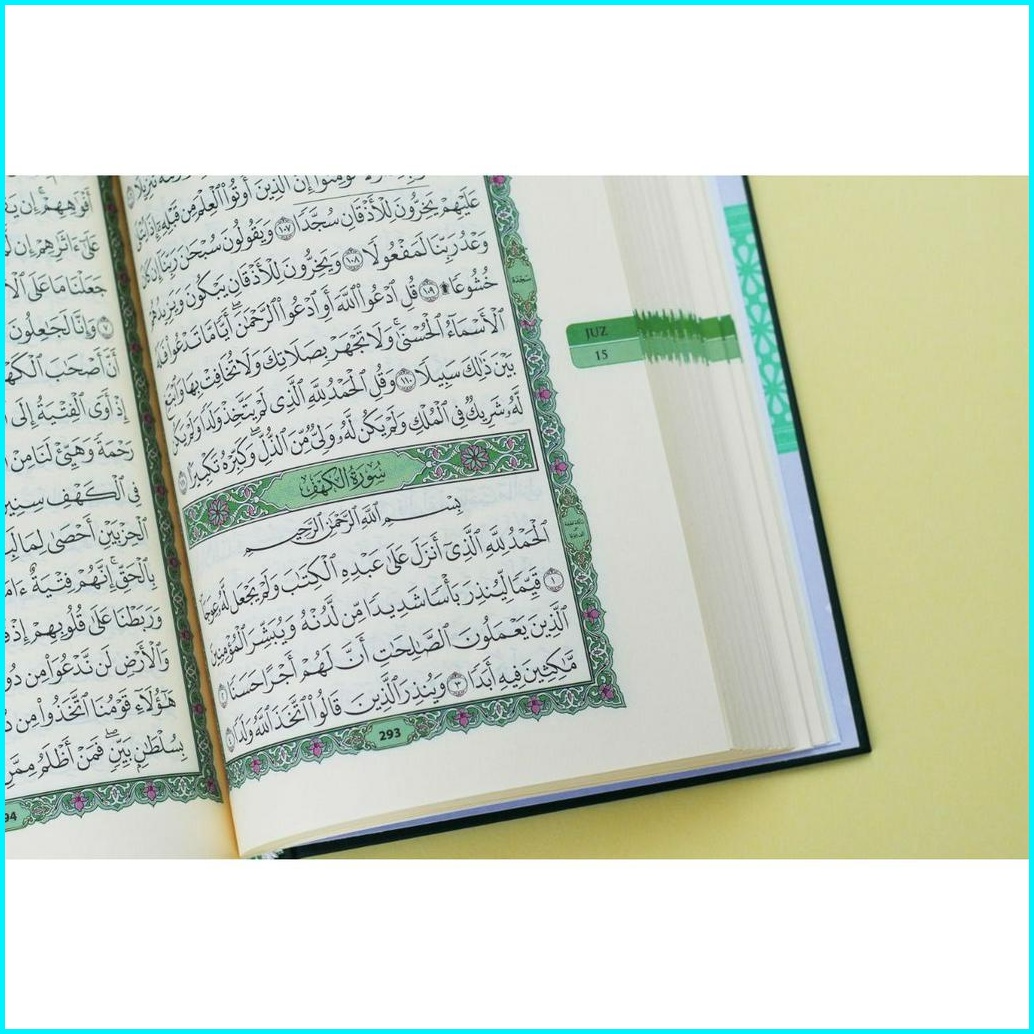 أُوتُوا۟ ٱلْعِلْمَ مِن قَبْلِهِۦٓ إِذَا يُتْلَىٰ
عَلَيْهِمْ يَخِرُّونَ لِلْأَذْقَانِ سُجَّدًا ١٠٧ وَيَقُولُونَ سُبْحَٰنَ رَبِّنَآ إِن كَانَ
وَعْدُ رَبِّنَا لَمَفْعُولًا ١٠٨ وَيَخِرُّونَ لِلْأَذْقَانِ يَبْكُونَ وَيَزِيدُهُمْ
خُشُوعًا ۩ ١٠٩ قُلِ ٱدْعُوا۟ ٱللَّهَ أَوِ ٱدْعُوا۟ ٱلرَّحْمَٰنَ ۖ أَيًّا مَّا تَدْعُوا۟ فَلَهُ
ٱلْأَسْمَآءُ ٱلْحُسْنَىٰ ۚ وَلَا تَجْهَرْ بِصَلَاتِكَ وَلَا تُخَافِتْ بِهَا وَٱبْتَغِ
بَيْنَ ذَٰلِكَ سَبِيلًا ١١٠ وَقُلِ ٱلْحَمْدُ لِلَّهِ ٱلَّذِى لَمْ يَتَّخِذْ وَلَدًا وَلَمْ يَكُن
لَّهُۥ شَرِيكٌ فِى ٱلْمُلْكِ وَلَمْ يَكُن لَّهُۥ وَلِىٌّ مِّنَ ٱلذُّلِّ ۖ وَكَبِّرْهُ تَكْبِيرًۢا ١١١
سُورَةُ الكَهْفِ
بِسْمِ ٱللَّهِ ٱلرَّحْمَٰنِ ٱلرَّحِيمِ
ٱلْحَمْدُ لِلَّهِ ٱلَّذِىٓ أَنزَلَ عَلَىٰ عَبْدِهِ ٱلْكِتَٰبَ وَلَمْ يَجْعَل لَّهُۥ عِوَجَا
١ قَيِّمًا لِّيُنذِرَ بَأْسًا شَدِيدًا مِّن لَّدُنْهُ وَيُبَشِّرَ ٱلْمُؤْمِنِينَ
ٱلَّذِينَ يَعْمَلُونَ ٱلصَّٰلِحَٰتِ أَنَّ لَهُمْ أَجْرًا حَسَنًا ٢
مَّٰكِثِينَ فِيهِ أَبَدًا ٣ وَيُنذِرَ ٱلَّذِينَ قَالُوا۟ ٱتَّخَذَ ٱللَّهُ وَلَدًا ٤
293
JUZ
15
سجدة
أَفْوَٰهِهِمْ ۚ إِن
عَلَىٰٓ ءَاثَٰرِهِمْ إِن
جَعَلْنَا مَا عَلَى
٧ وَإِنَّا لَجَٰعِلُونَ
أَنَّ أَصْحَٰبَ
إِذْ أَوَى ٱلْفِتْيَةُ إِلَى
رَحْمَةً وَهَيِّئْ لَنَا مِنْ
فِى ٱلْكَهْفِ سِنِينَ
ٱلْحِزْبَيْنِ أَحْصَىٰ لِمَا
بِٱلْحَقِّ ۚ إِنَّهُمْ فِتْيَةٌ
وَرَبَطْنَا عَلَىٰ قُلُوبِهِمْ إِذْ
وَٱلْأَرْضِ لَن نَّدْعُوَا۟ مِن
هَٰٓؤُلَآءِ قَوْمُنَا ٱتَّخَذُوا۟ مِن
بِسُلْطَٰنٍۭ بَيِّنٍ ۖ فَمَنْ أَظْلَمُ مِمَّنِ